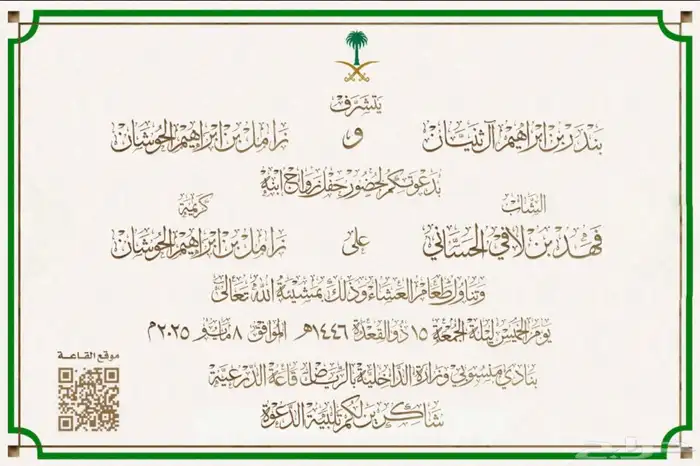 يتشرف
بندر بن ابراهيم آل ثنيان و زامل بن ابراهيم الحوشان
بدعوتكم لحضور حفل زواج ابنه
الشاب كريمة
فهد بن لافي الحساني على زامل بن ابراهيم الحوشان
وتناول طعام العشاء وذلك بمشيئة الله تعالى
يوم الخميس ليلة الجمعة ١٥ ذو القعدة ١٤٤٦هـ الموافق ٨ مايو ٢٠٢٥م
بنادي منسوبي وزارة الداخلية بالرياض قاعة الدرعية
شاكرين لكم تلبية الدعوة
موقع القاعة
حراج